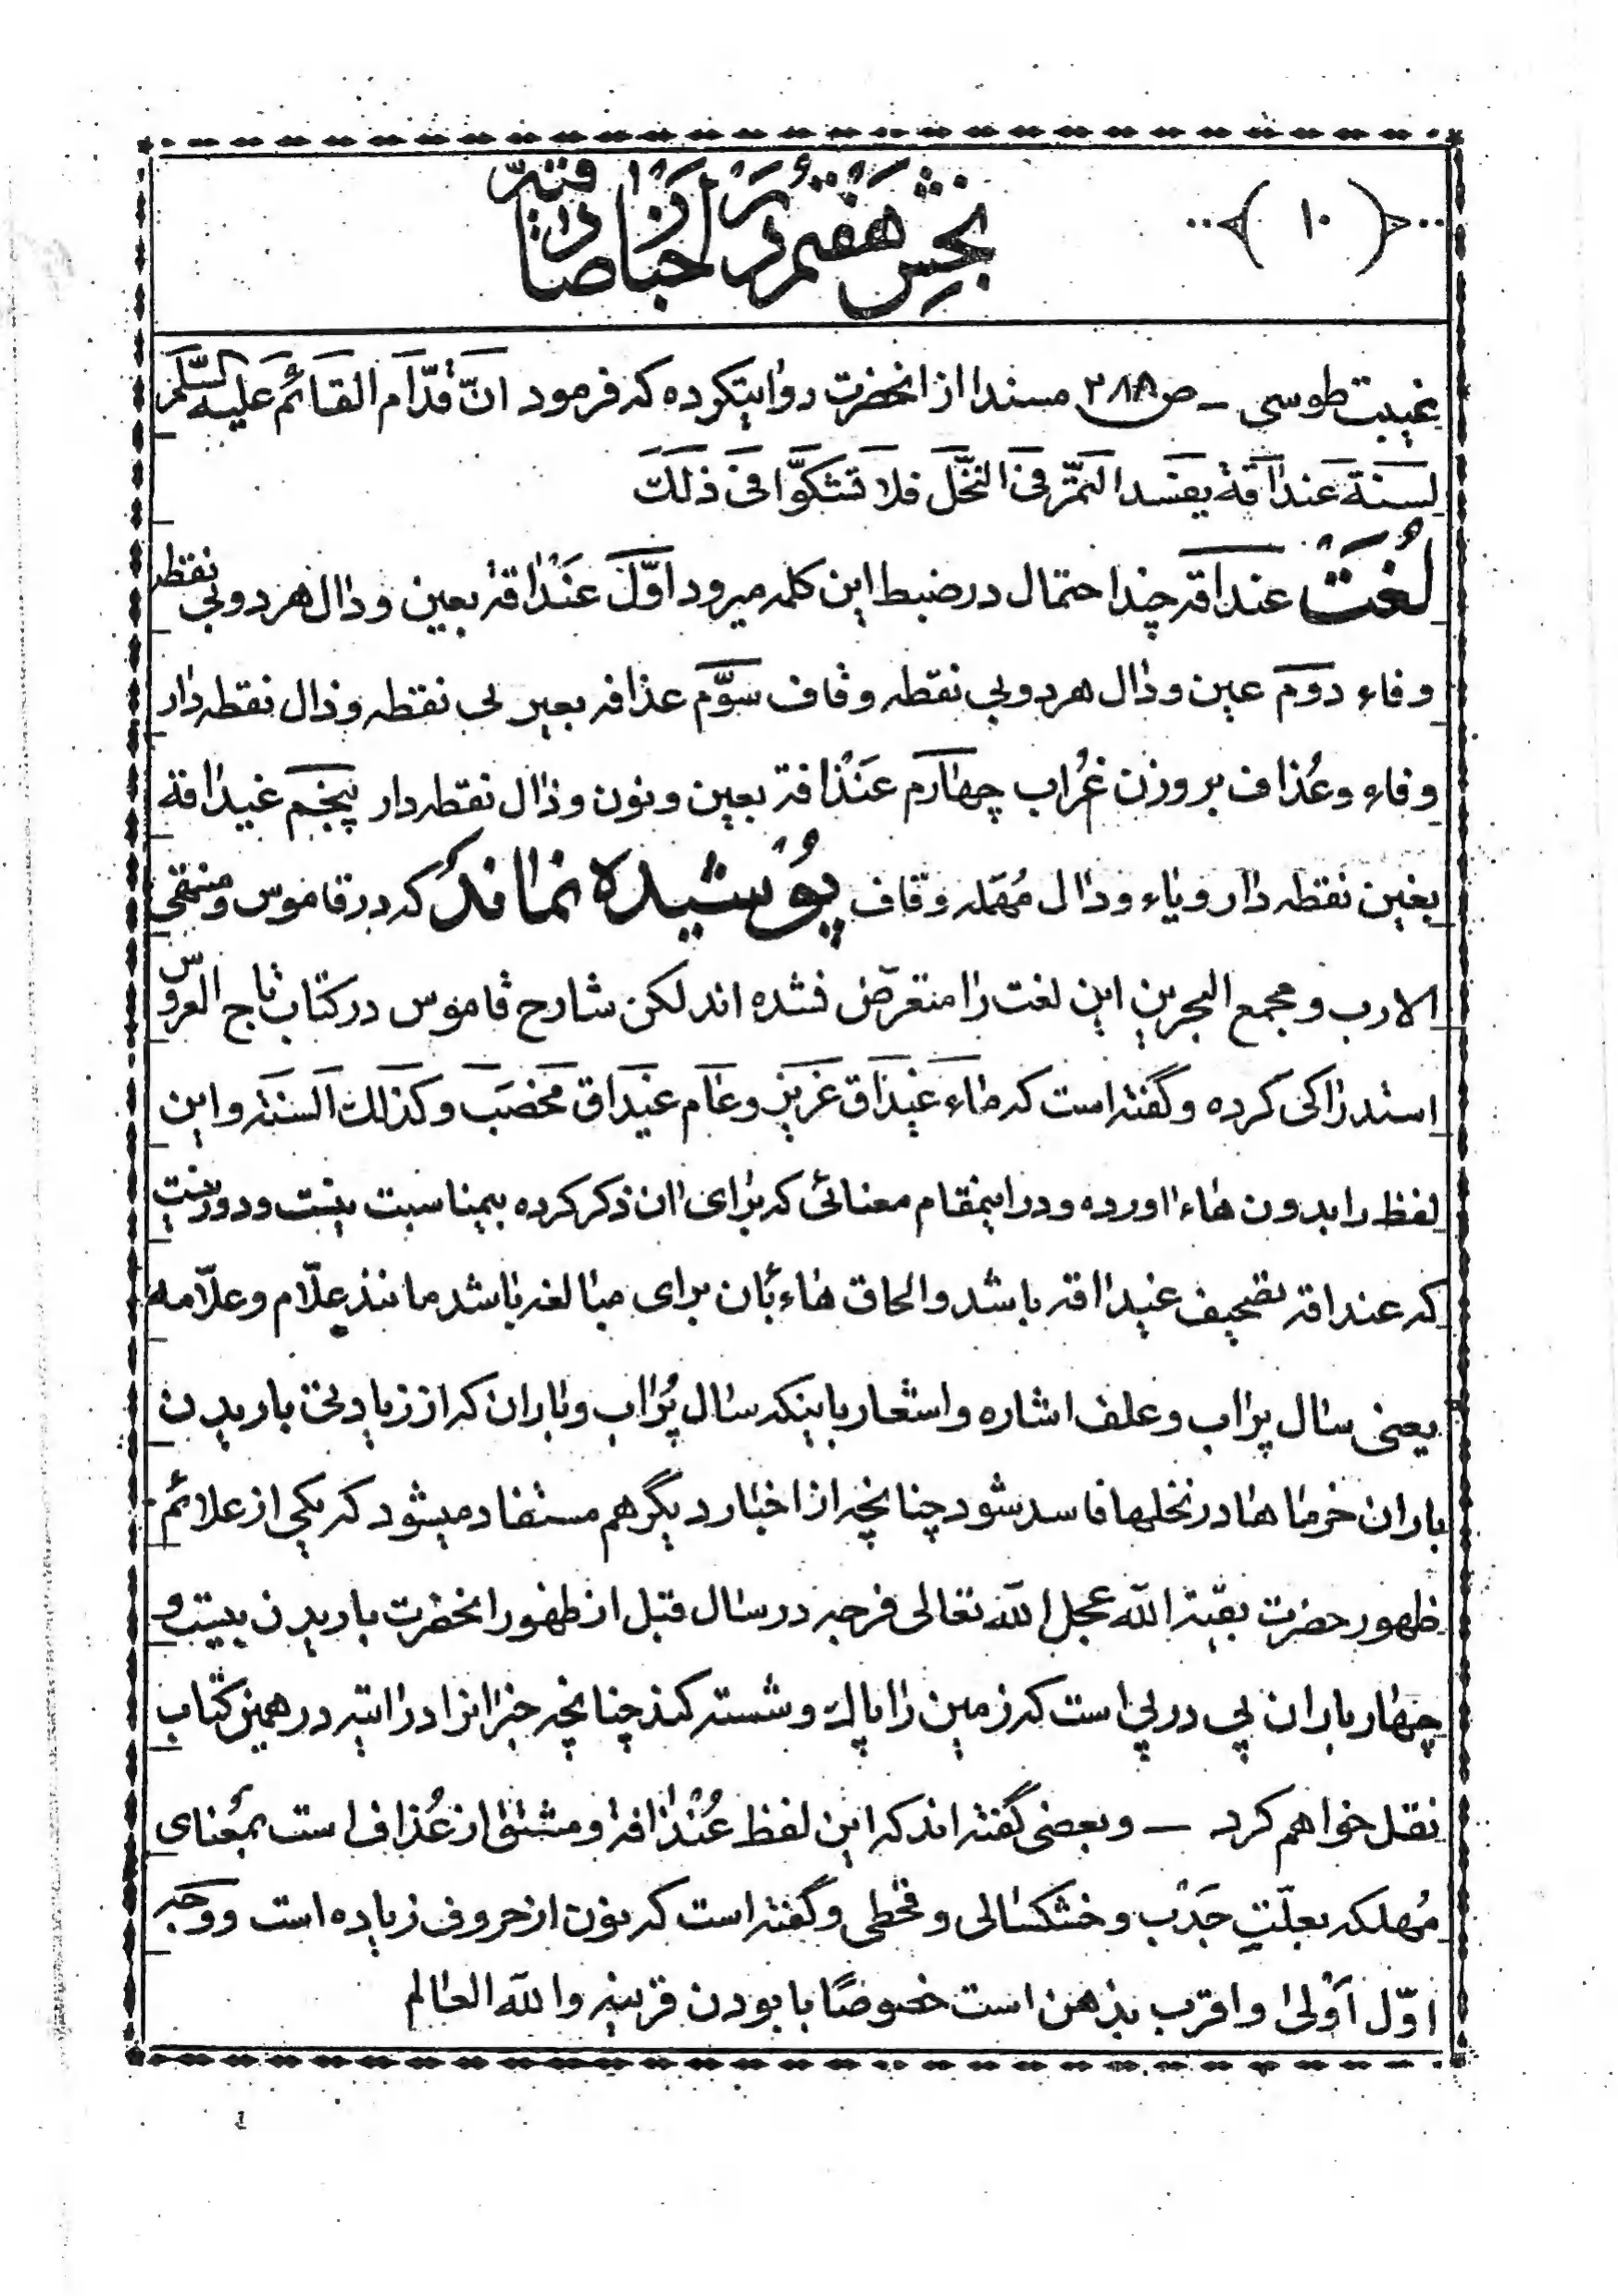 (١٠)
بخش هفتم در اخبار صادقیّه
غیبت طوسی ــ ص ٢٨٨ مسندا از انحضرت روایتکرده که فرمود انّ قدّام القائم علیه السّلم
لسنة عنداقة یفسد التمّر فی النخّل فلا تشکوّا فی ذلک
لُغَت عنداقه چند احتمال در ضبط این کلمه میرود اوّل عَنْدافه بعین ودال هر دو بی نقطه
وفاء دوم عین ودال هر دو بی نقطه وقاف سوّم عذافه بعین بی نقطه وذال نقطه دار
وفاء وعُذاف بر وزن غُراب چهارم عَنْذافة بعین ونون وذال نقطه دار پنجم غیداقة
بغین نقطه دار ویاء ودال مُهمَله وقاف پوُشیده نماند که در قاموس ومنتهی
الارب ومجمع البحرین این لغت را متعرّض نشده اند لکن شارح قاموس در کتاب تاج العروس
استدراکی کرده وگفته است که ماء غیداق غریز وعام غیداق مخصَب وکذلک السنة واین
لفظ را بدون هاء اورده ودر اینمقام معنائی که برای ان ذکر کرده بیمناسبت نیست ودور نیست
که عنداقه تصحیف غیداقه باشد والحاق هاء بان برای مبالغه باشد مانند علّام وعلّامه
یعنی سال پر اب وعلف اشاره واشعار باینکه سال پُر اب وباران که از زیادتی باریدن
باران خرماها در نخلها فاسد شود چنانچه از اخبار دیگر هم مستفاد میشود که یکی از علائم
ظهور حضرت بقیّة الله عجل الله تعالی فرجه در سال قبل از ظهور انحضرت باریدن بیست و
چهار باران پی در پی است که زمین را پاک وشسته کند چنانچه خبر انرا در اتیه در همین کتاب
نقل خواهم کرد ــ وبعضی گفته اند که این لفظ عُنْذافه ومشتق از عُذاف است بمعنای
مُهلکه بعلّتِ جَدْب وخشکسالی وقحطی وگفته است که نون از حروف زیاده است ووجه
اوّل اَوْلی واقرب بذهن است خصوصًا با بودن قرینه والله العالم